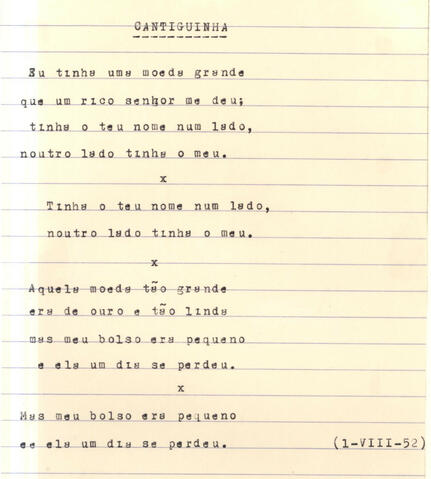 CANTIGUINHA
Eu tinha uma moeda grande
que um rico senhor me deu;
tinha o teu nome num lado,
noutro lado tinha o meu.
x
Tinha o teu nome num lado,
noutro lado tinha o meu.
x
Aquela moeda tão grande
era de ouro e tão linda
mas meu bolso era pequeno
e ela um dia se perdeu.
x
Mas meu bolso era pequeno
ee ela um dia se perdeu. (1-VIII-52)